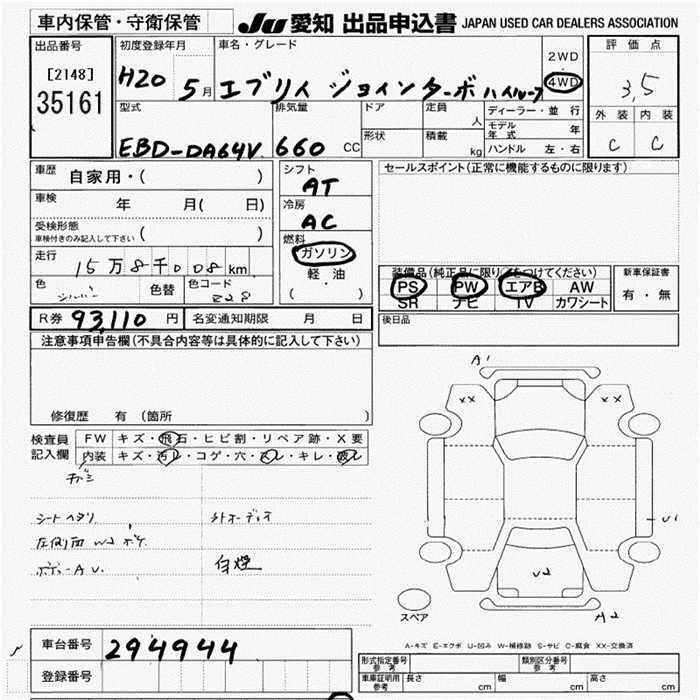 車内保管・守衛保管
JU 愛知 出品申込書 JAPAN USED CAR DEALERS ASSOCIATION
出品番号
[2148]
35161
初度登録年月
H20 5月
車名・グレード
エブリイ ジョインターボ ハイルーフ
2WD
4WD
評価点
3.5
外装 内装
C C
型式
EBD-DA64V
排気量
660 CC
ドア
形状
定員
人
積載
kg
ディーラー・並行
モデル年式 年
ハンドル 左・右
車歴
自家用・( )
車検
年 月( 日)
受検形態
車検付きのみ記入して下さい ( )
走行
15万8千008km
色
シルバー
色替
色コード
Z2S
シフト
AT
冷房
AC
燃料
ガソリン
軽・油
( )
セールスポイント(正常に機能するものに限ります)
PS PW エアB AW
SR ナビ TV カワシート
新車保証書
有・無
R券 93,110 円
名変通知期限 月 日
後日品
注意事項申告欄(不具合内容等は具体的に記入して下さい)
修復歴 有 (箇所 )
検査員
記入欄
FW キズ・飛石・ヒビ割・リペア跡・X要
内装 キズ・汚レ・コゲ・穴・スレ・キレ・破レ
シートヘタリ
外オーディオ
白煙
A1
XX XX
U1
U2
A2
スペア
A-キズ E-エクボ U-凹み W-補修跡 S-サビ C-腐食 XX-交換済
車台番号 294944
登録番号
形式指定番号
参考
類別区分番号
参考
車庫証明用
参考
長さ cm 幅 cm 高さ cm